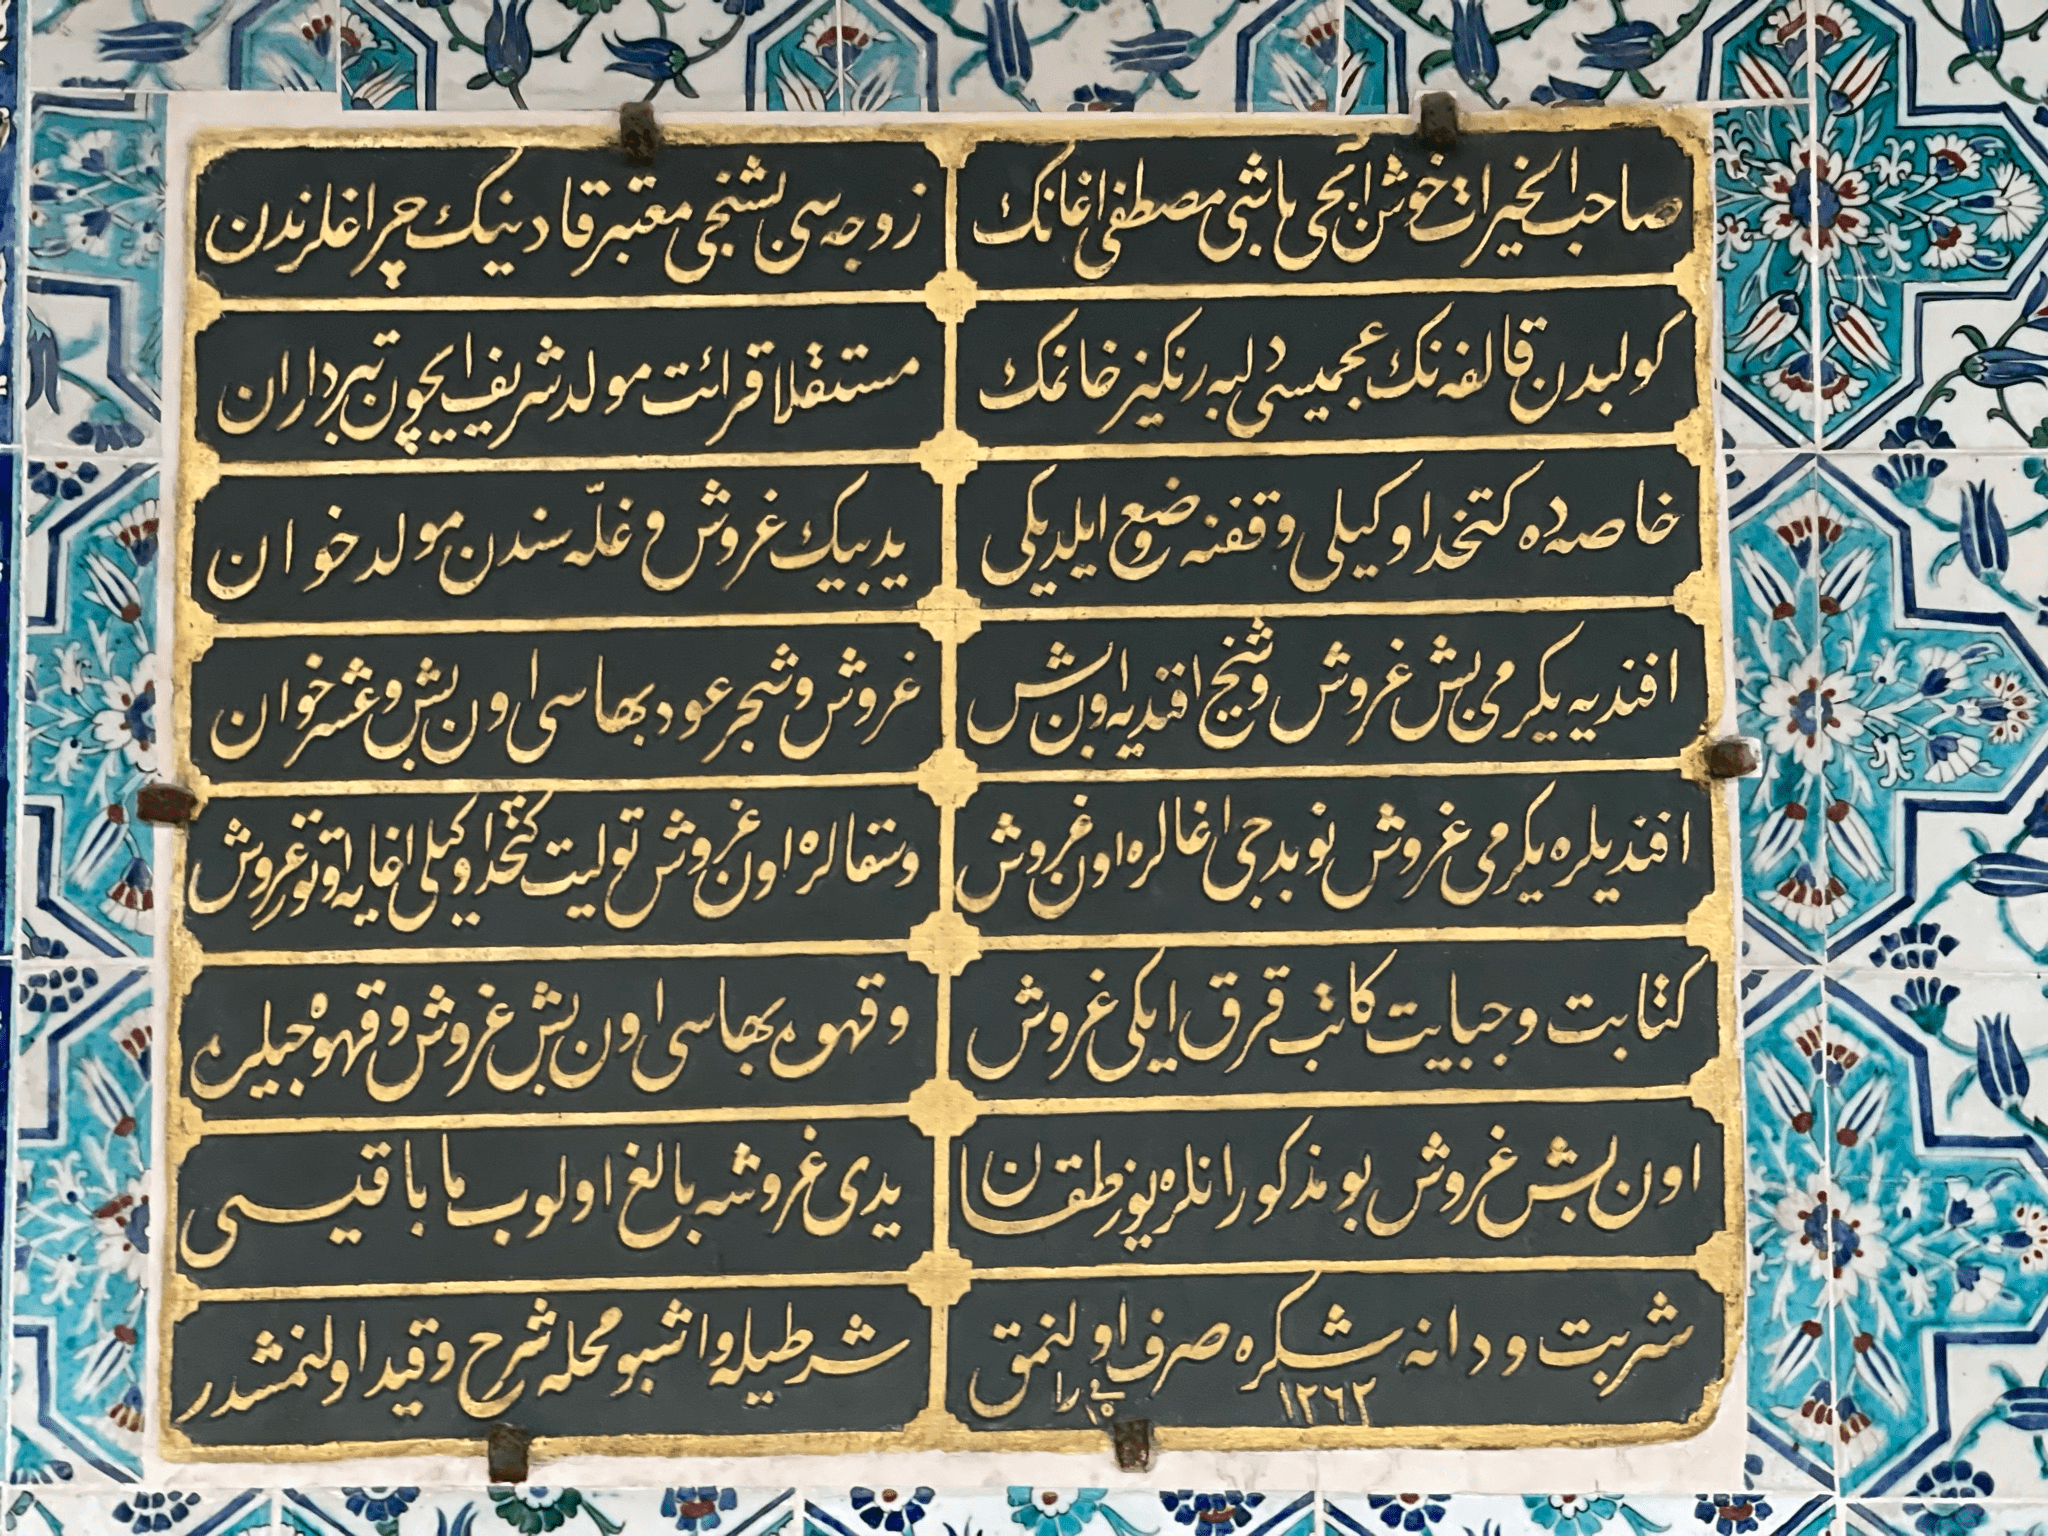 صاحب الخيرات خوش آيحی باشی مصطفی اغانك
زوجه سی بشنجی معتبر قادينك چراغلرندن
كولبدن قالفه نك عجميسی دلبه رنكيز خانمك
مستقلا قرائت مولد شريف ايچون تبرداران
خاصه ده كتخدا وكيلی وقفنه وضع ايلديكی
يديبيك غروش و غلّه سندن مولد خوان
افنديه يكرمی بش غروش و شيخ افنديه اون بش
غروش و شجر عود بهاسی اون بش و عشر خوان
افنديلره يكرمی غروش نوبدجی اغالره اون غروش
و سقالره اون غروش توليت كتخدا وكيلی اغايه اوتوز غروش
كتابت و جبايت كاتب قرق ايكی غروش
و قهوه بهاسی اون بش غروش و قهوه جيلره
اون بش غروش بو مذكورانلره يوز طقسان
يدی غروشه بالغ اولوب ما باقيسی
شربت و دانه شكره صرف اولنمق
شرطيله و اشبو محله شرح و قيد اولنمشدر
١٢٦٢
فی را
١٥